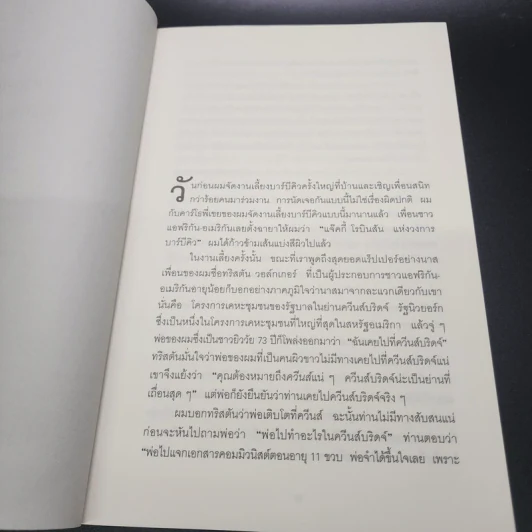 วันก่อนผมจัดงานเลี้ยงบาร์บีคิวครั้งใหญ่ที่บ้านและเชิญเพื่อนสนิท
กว่าร้อยคนมาร่วมงาน การนัดเจอกันแบบนี้ไม่ใช่เรื่องผิดปกติ ผม
กับคาร์โรพี่เขยของผมจัดงานเลี้ยงบาร์บีคิวแบบนี้มานานแล้ว เพื่อนชาว
แอฟริกัน-อเมริกันเลยตั้งฉายาให้ผมว่า "แจ๊คกี้ โรบินสัน แห่งวงการ
บาร์บีคิว" ผมได้ก้าวข้ามเส้นแบ่งสีผิวไปแล้ว
ในงานเลี้ยงครั้งนั้น ขณะที่เราพูดถึงสุดยอดแร็ปเปอร์อย่างนาส
เพื่อนของผมชื่อทริสตัน วอล์กเกอร์ ที่เป็นผู้ประกอบการชาวแอฟริกัน-
อเมริกันอายุน้อยก็บอกอย่างภาคภูมิใจว่านาสมาจากละแวกเดียวกับเขา
นั่นคือ โครงการเคหะชุมชนของรัฐบาลในย่านควีนส์บริดจ์ รัฐนิวยอร์ก
ซึ่งเป็นหนึ่งในโครงการเคหะชุมชนที่ใหญ่ที่สุดในสหรัฐอเมริกา แล้วจู่ ๆ
พ่อของผมซึ่งเป็นชาวยิววัย 73 ปีก็โพล่งออกมาว่า "ฉันเคยไปที่ควีนส์บริดจ์"
ทริสตันมั่นใจว่าพ่อของผมที่เป็นคนผิวขาวไม่มีทางเคยไปที่ควีนส์บริดจ์แน่
เขาจึงแย้งว่า "คุณต้องหมายถึงควีนส์แน่ ๆ ควีนส์บริดจ์น่ะเป็นย่านที่
เถื่อนสุด ๆ" แต่พ่อก็ยังยืนยันว่าท่านเคยไปควีนส์บริดจ์จริง ๆ
ผมบอกทริสตันว่าพ่อเติบโตที่ควีนส์ ฉะนั้นท่านไม่มีทางสับสนแน่
ก่อนจะหันไปถามพ่อว่า "พ่อไปทำอะไรในควีนส์บริดจ์" ท่านตอบว่า
"พ่อไปแจกเอกสารคอมมิวนิสต์ตอนอายุ 11 ขวบ พ่อจำได้ขึ้นใจเลย เพราะ